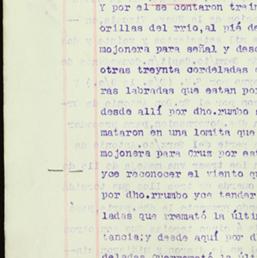 Y por el se contaron train
orillas del rrio, al pié de
mojonera para señal y desd
otras treynta cordeladas
ras labradas que estan por
desde allí por dho. rumbo
mataron en una lomita que
mojonera para Cruz por est
yce reconocer el viento qu
por dho. rrumbo yce tender
ladas que rremató la últim
tancia; y desde aquí por d
deladas quarremató la últi